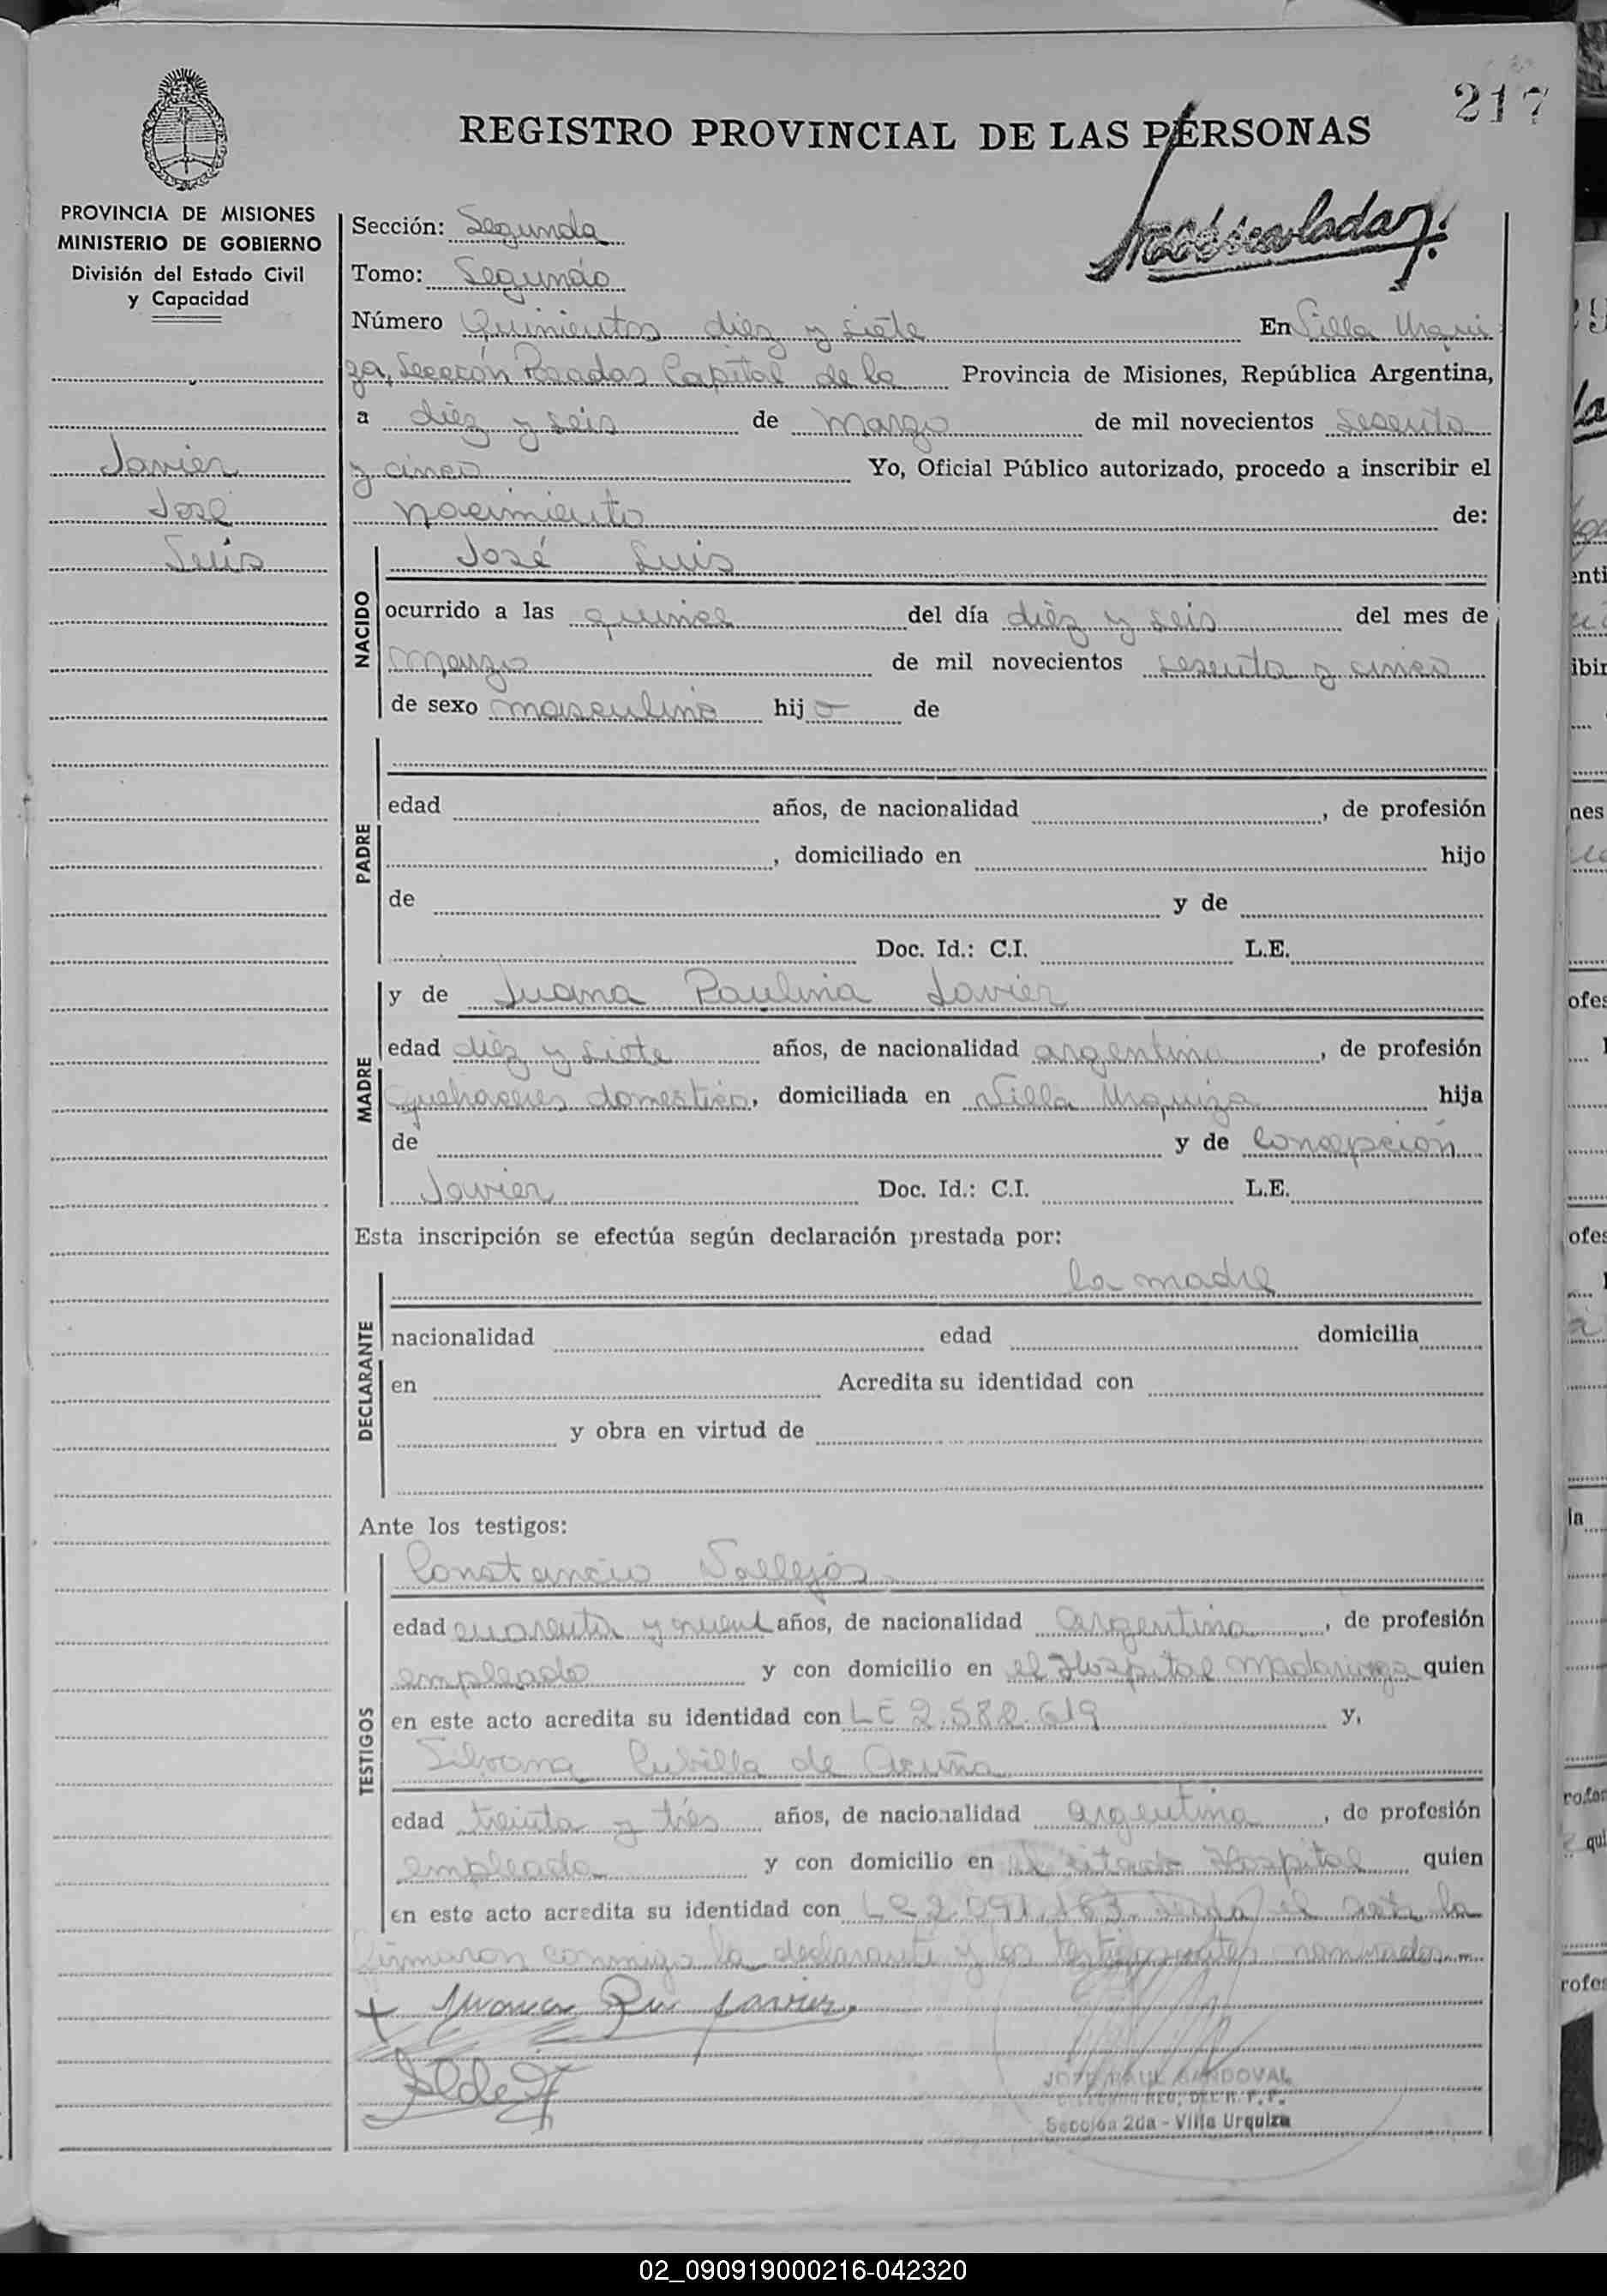 217
REGISTRO PROVINCIAL DE LAS PERSONAS
PROVINCIA DE MISIONES
MINISTERIO DE GOBIERNO
División del Estado Civil
y Capacidad
Javier
José
Luis
Sección: Segunda
Tomo: Segundo
Número Quinientos diez y siete En Villa Urqui
za, Sección Posadas Capital de la Provincia de Misiones, República Argentina,
a diéz y seis de Marzo de mil novecientos sesenta
y cinco Yo, Oficial Público autorizado, procedo a inscribir el
nacimiento de:
NACIDO
José Luis
ocurrido a las quince del día diéz y seis del mes de
Marzo de mil novecientos sesenta y cinco
de sexo masculino hijo de
PADRE
edad años, de nacionalidad , de profesión
, domiciliado en hijo
de y de
Doc. Id.: C.I. L.E.
MADRE
y de Juana Paulina Javier
edad diéz y siete años, de nacionalidad argentina, de profesión
Quehaceres domestico, domiciliada en Villa Urquiza hija
de y de Concepción
Javier Doc. Id.: C.I. L.E.
Esta inscripción se efectúa según declaración prestada por:
DECLARANTE
la madre
nacionalidad edad domicilia
en Acredita su identidad con
y obra en virtud de
Ante los testigos:
TESTIGOS
Constancio Vallejos
edad cuarenta y nueve años, de nacionalidad Argentina, de profesión
empleado y con domicilio en el Hospital Madariaga quien
en este acto acredita su identidad con LE 2.582.619 y,
Silvana Cubilla de Acuña
edad treinta y trés años, de nacionalidad argentina, de profesión
empleada y con domicilio en el citado Hospital quien
en este acto acredita su identidad con LC 2.091.163. Leida el acta la
firmaron conmigo la declarante y los testigos antes nominados
Juana Pau Javier
JOSE RAUL SANDOVAL
Sección 2da - Villa Urquiza
02_090919000216-042320